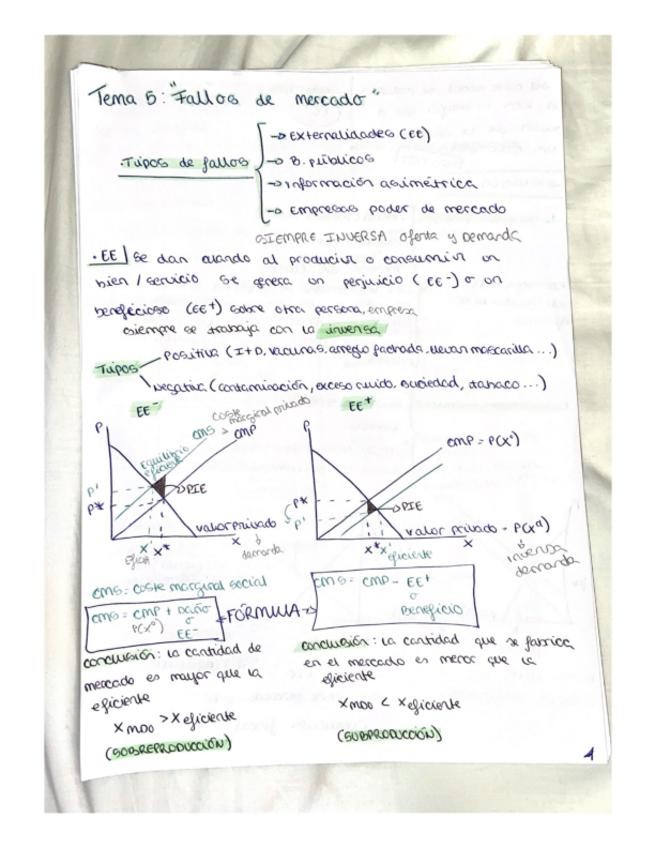 Tema 5: "Fallos de mercado"
· Tipos de fallos
→ Externalidades (EE)
→ B. públicos
→ Información asimétrica
→ Empresas poder de mercado
SIEMPRE INVERSA oferta y Demanda
· EE | Se dan cuando al producir o consumir un
bien / servicio se genera un perjuicio (EE⁻) o un
beneficioso (EE⁺) sobre otra persona, empresa
siempre se trabaja con la inversa
Tipos
Positiva (I+D, vacunas, arreglo fachada, llevan mascarilla ...)
Negativa (contaminación, exceso ruido, suciedad, tabaco ...)
EE⁻
coste marginal privado
CMS > CMP
Equilibrio eficiente
P
P'
P*
PIE
valor privado
demanda
X' X*
X
Eficien
EE⁺
P
CMP = P(X⁰)
P*
P'
PIE
valor privado = P(Xᵈ)
inversa demanda
X* X'
eficiente
X
CMS: coste marginal social
CMS = CMP + Daño
P(X⁰) o
EE⁻
FÓRMULA
CMS = CMP - EE⁺
o
Beneficio
Conclusión: La cantidad de
mercado es mayor que la
eficiente
X mdo > X eficiente
(SOBREPRODUCCIÓN)
Conclusión: La cantidad que se fabrica
en el mercado es menor que la
eficiente
X mdo < X eficiente
(SUBPRODUCCIÓN)
1